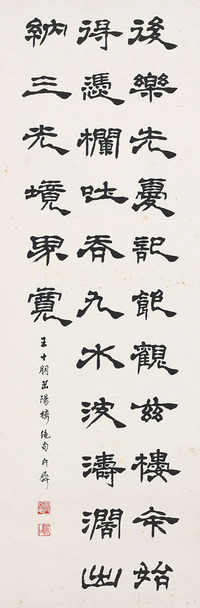 後樂先憂記飽觀茲樓今始
得憑欄吐吞九水波濤濶出
納三光境界寬
王十朋岳陽樓絕句